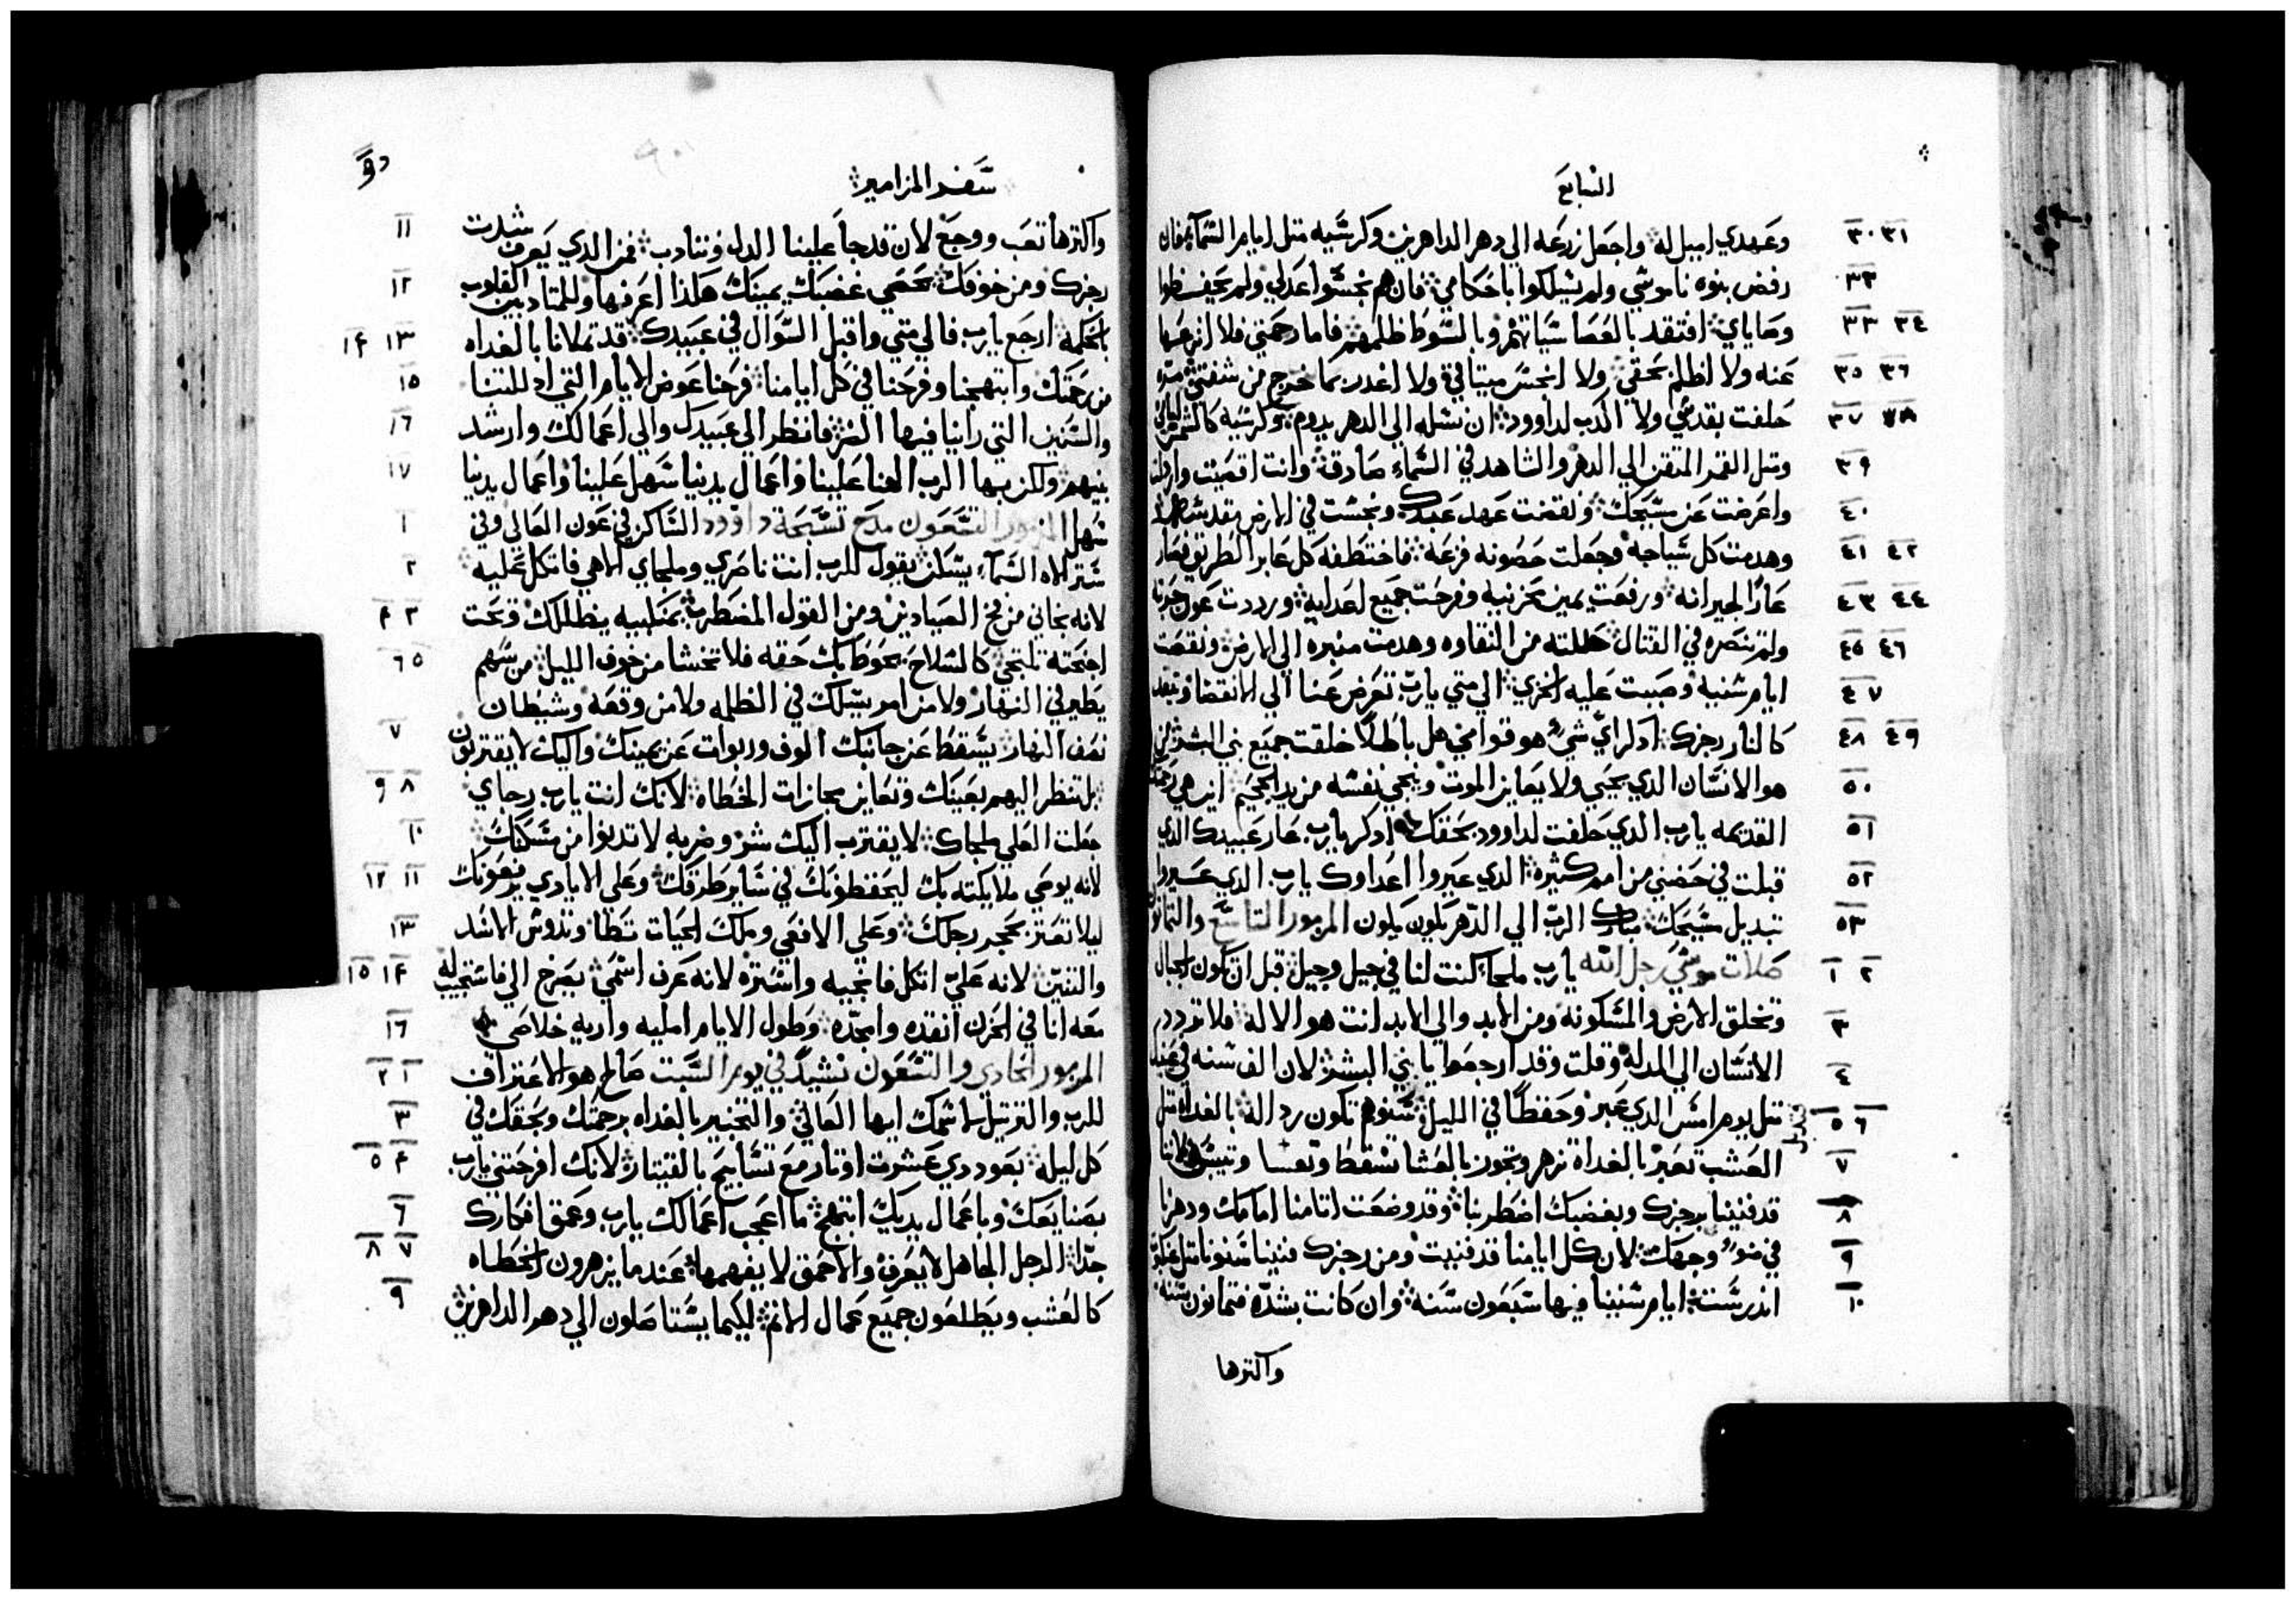 السابع
٣٠ ٣١ وعهدي اميل له واجعل زرعه الي دهر الداهرين وكرسيه متل ايام السماء فان
٣٢ رفض بنوه ناموسي ولم يسلكوا باحكامي فان هم نجسوا عدلي ولم يحفظوا
٣٣ ٣٤ وصاياي افتقد بالعصا سياتهم وبالسوط ظلمهم فاما رحمتي فلا انزعها
٣٥ ٣٦ عنه ولا اظلم بحقي ولا انجس ميتاقي ولا اغدر بما خرج من شفتي
٣٧ ٣٨ حلفت بقدسي ولا اكدب لداوود ان نسله الي الدهر يدوم وكرسيه كالشمس
٣٩ ومتل القمر المتقن الي الدهر والشاهد في السماء صادق وانت اقصيت
٤٠ واعرضت عن مسيحك ونقضت عهد عبدك ونجست في الارض
٤١ ٤٢ وهدمت كل سياجه وجعلت حصونه فزعه فاختطفه كل عابر الطريق فصار
٤٣ ٤٤ عارا لجيرانه ورفعت يمين محزنيه وفرحت جميع اعدايه ورددت عون
٤٥ ٤٦ ولم تنصره في القتال حللته من النقاوه وهدمت منبره الي الارض ونقصت
٤٧ ايام سنيه وصببت عليه الخزي الي متي يارب تعرض عنا الي الانقضا
٤٨ ٤٩ كالنار رجزك ادكر اي شي هو قوامي هل باطلا خلقت جميع بني البشر
٥٠ هو الانسان الدي يحيي ولا يعاين الموت وينجي نفسه من يد الجحيم اين هي
٥١ القديمه يارب الدي حلفت لداوود بحقك ادكر يارب عار عبيدك الدي
٥٢ قبلت في حضني من امم كثيرة الدي عيروا اعداوك يارب الدي عيروا
٥٣ تبديل مسيحك مبارك الرب الي الدهر يكون يكون المزمور التاسع والتمانون
١ ٢ صلات موسي رجل الله يارب ملجا كنت لنا في جيل وجيل قبل ان تكون الجبال
٣ وتخلق الارض والمسكونه ومن الابد والي الابد انت هو الاله فلا تردد
٤ الانسان الي المدله وقلت وقد ارجعوا يا بني البشر لان الف سنه في عينيك
٥ ٦ متل يوم امس الدي عبر وحفظا في الليل سنوهم تكون رداله بالغداه متل
٧ العشب تعبر بالغداة تزهر وتجوز بالعشا تسقط وتعسا وتيبس لاننا
٨ قد فنينا برجزك وبغضبك اضطربنا وقد وضعت اتامنا امامك ودهرنا
٩ في ضوء وجهك لان كل ايامنا قد فنيت ومن رجزك فنينا سنونا متل
١٠ اندرست ايام سنينا فيها سبعون سنه وان كانت بشده فتمانون سنه
واكترها
سفر المزامير
١١ واكترها تعب ووجع لان قد جا علينا الدل فنتادب فمن الدي يعرف شدت
١٢ رجزك ومن خوفك يحصي غضبك يمينك هكذا اعرفها وللمتادبين القلوب
١٣ ١٤ بالحكمه ارجع يارب فالي متي واقبل السوال في عبيدك قد تملانا بالغداه
١٥ من رحمتك وابتهجنا وفرحنا في كل ايامنا فرحنا عوض الايام التي ادللتنا
١٦ والسنين التي راينا فيها الشر فانظر الي عبيدك والي اعمالك وارشد
١٧ بنيهم وليكن بها الرب الهنا علينا واعمال يدينا سهل علينا واعمال يدينا
١ سهل المزمور التسعون مدح تسبحة داوود الساكن في عون العالي وفي
٢ ستر الاه السماء يسكن يقول للرب انت ناصري وملجاي الاهي فاتكل عليه
٣ ٤ لانه نجاني من فخ الصيادين ومن القول المضطرب بمنكبيه يظللك وتحت
٥ ٦ اجنحته تلتجي كالسلاح يحوط بك حقه فلا تخشا من خوف الليل من سهم
يطير في النهار ولا من امر يسلك في الظلمه ولا من وقعه وشيطان
٧ نصف النهار يسقط عن جانبك الوف وربوات عن يمينك واليك لا يقتربون
٨ ٩ بل تنظر اليهم بعينك وتعاين مجازات الخطاه لانك انت يارب رجاي
١٠ جعلت العلي ملجاك لا يقترب اليك شر وضربه لا تدنوا من مسكنك
١١ ١٢ لانه يوصي ملايكته بك ليحفظونك في ساير طرقك وعلي الايادي يرفعونك
١٣ ليلا تعتر بحجر رجلك وعلي الافعي وملك الحيات تطا وتدوس الاسد
١٤ ١٥ والتنين لانه علي اتكل فانجيه واستره لانه عرف اسمي يصرخ الي فاستجيب له
١٦ معه انا في الحزن انقده وامجده وطول الايام امليه واريه خلاصي
١ ٢ المزمور الحادي والتسعون نشيد في يوم السبت صالح هو الاعتراف
٣ للرب والترتيل لاسمك ايها العالي والتخبير بالغداه برحمتك وبحقك في
٤ ٥ كل ليله بعود دي عشرت اوتار مع تسابيح بالقيتار لانك افرحتني يارب
٦ بصنايعك وباعمال يديك ابتهج ما اعجب اعمالك يارب وعمق افكارك
٧ ٨ جدا الرجل الجاهل لا يعرف والاحمق لا يفهمها عند ما يزهرون الخطاه
٩ كالعشب ويطلعون جميع عمال الاتم لكيما يستاصلون الي دهر الداهرين